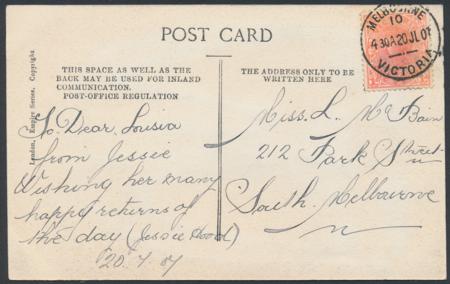 POST CARD
MELBOURNE
10
4 30A 20 JL 07
VICTORIA
THIS SPACE AS WELL AS THE
BACK MAY BE USED FOR INLAND
COMMUNICATION.
POST-OFFICE REGULATION
THE ADDRESS ONLY TO BE
WRITTEN HERE
London, Empire Series, Copyright
To Dear, Louisia
from Jessie
Wishing her many
happy returns of
the day (Jessie Hood)
20.7.07
Miss. L. McBain
212 Park Street
South Melbourne